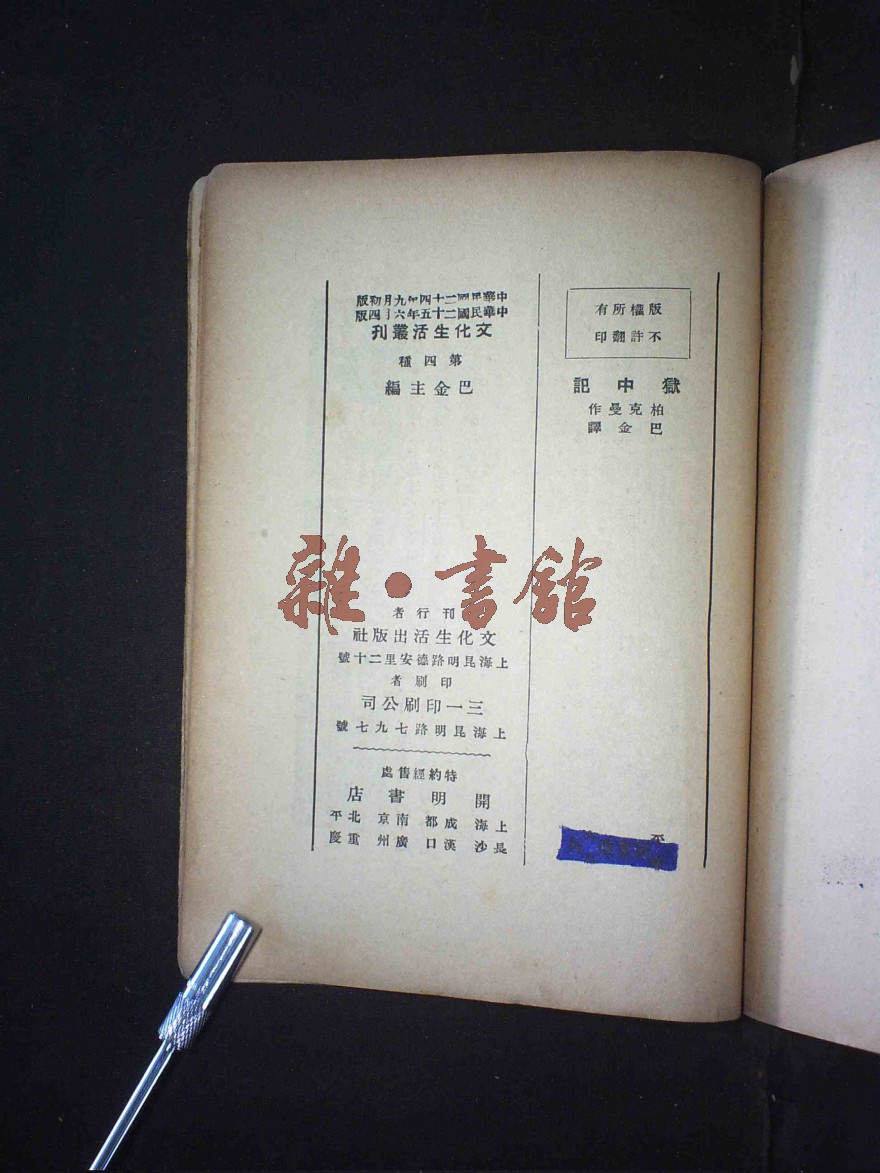 版權所有
不許翻印
獄中記
柏克曼作
巴金譯
中華民國二十四年九月初版
中華民國二十五年六月四版
文化生活叢刊
第四種
巴金主編
雜·書館
刊行者
文化生活出版社
上海昆明路德安里二十號
印刷者
三一印刷公司
上海昆明路七九七號
特約經售處
開明書店
上海 成都 南京 北平
長沙 漢口 廣州 重慶